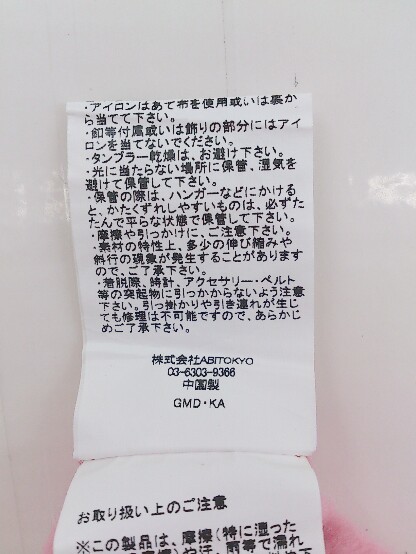 ・アイロンはあて布を使用或いは裏か
ら当てて下さい。
・釦等付属或いは飾りの部分にはアイ
ロンを当てないでください。
・タンブラー乾燥は、お避け下さい。
・光に当たらない場所に保管、湿気を
避けて保管して下さい。
・保管の際は、ハンガーなどにかける
と、かたくずれしやすいものは、必ずた
たんで平らな状態で保管して下さい。
・摩擦や引っかけに、ご注意下さい。
・素材の特性上、多少の伸び縮みや
斜行の現象が発生することがあります
ので、ご了承下さい。
・着脱際、時計、アクセサリー・ベルト
等の突起物に引っかからないよう注意
下さい。引っ掛かりや引き連れが生じ
ても修理は不可能ですので、あらかじ
めご了承下さい。
株式会社ABITOKYO
03-6303-9366
中国製
GMD・KA
お取り扱い上のご注意
※この製品は、摩擦(特に湿った
の摩擦)や汗、雨等で濡れ